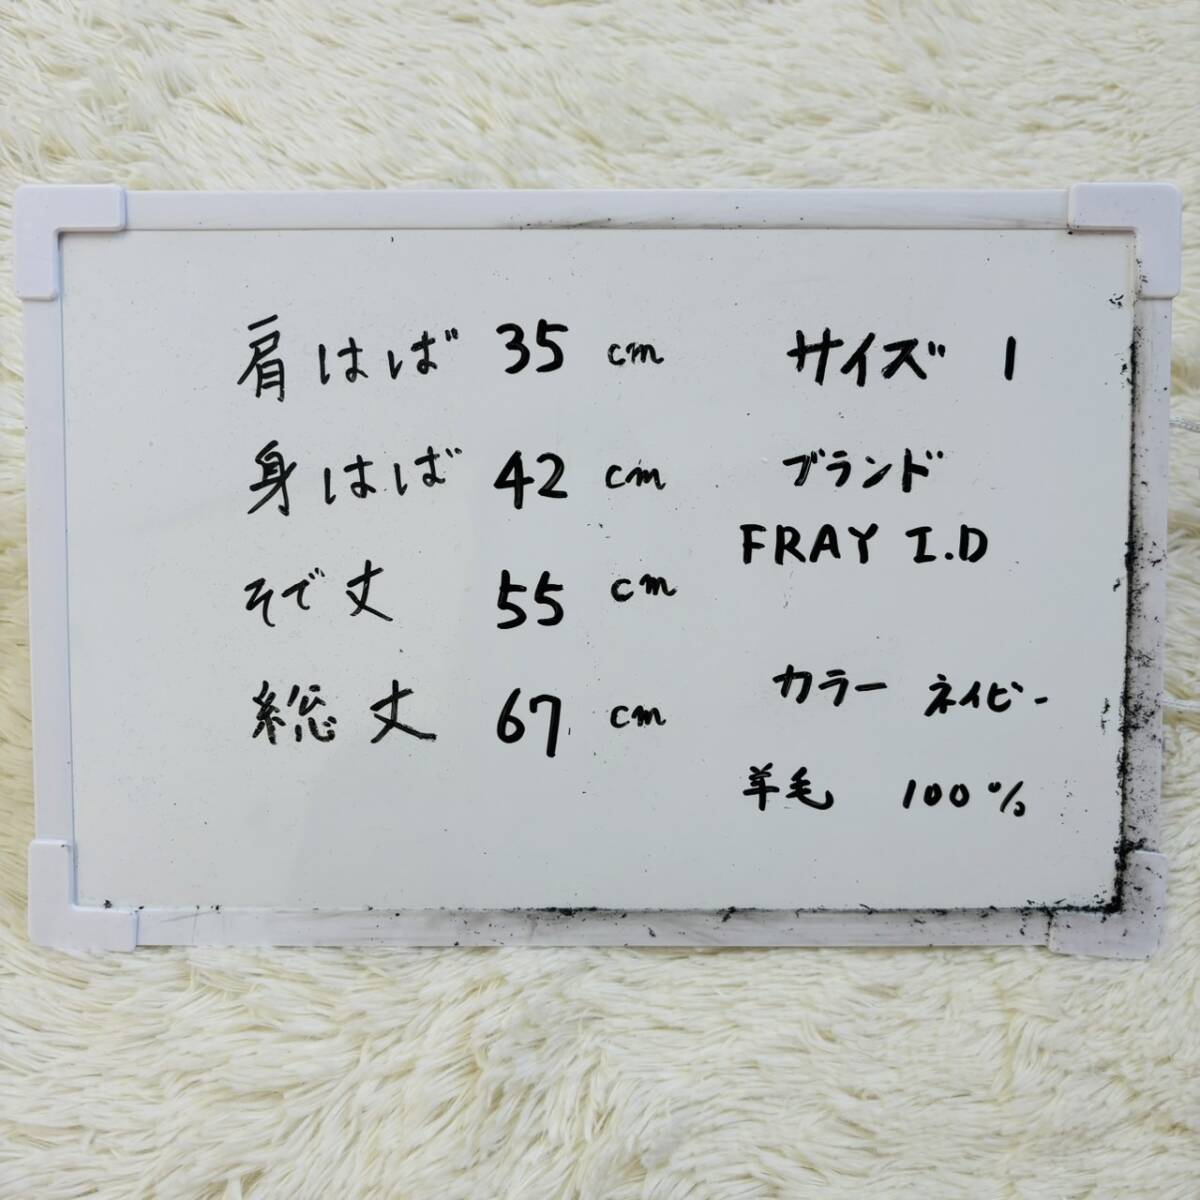 肩はば 35 cm
身はば 42 cm
そで丈 55 cm
総丈 67 cm
サイズ 1
ブランド
FRAY I.D
カラー ネイビー
羊毛 100%